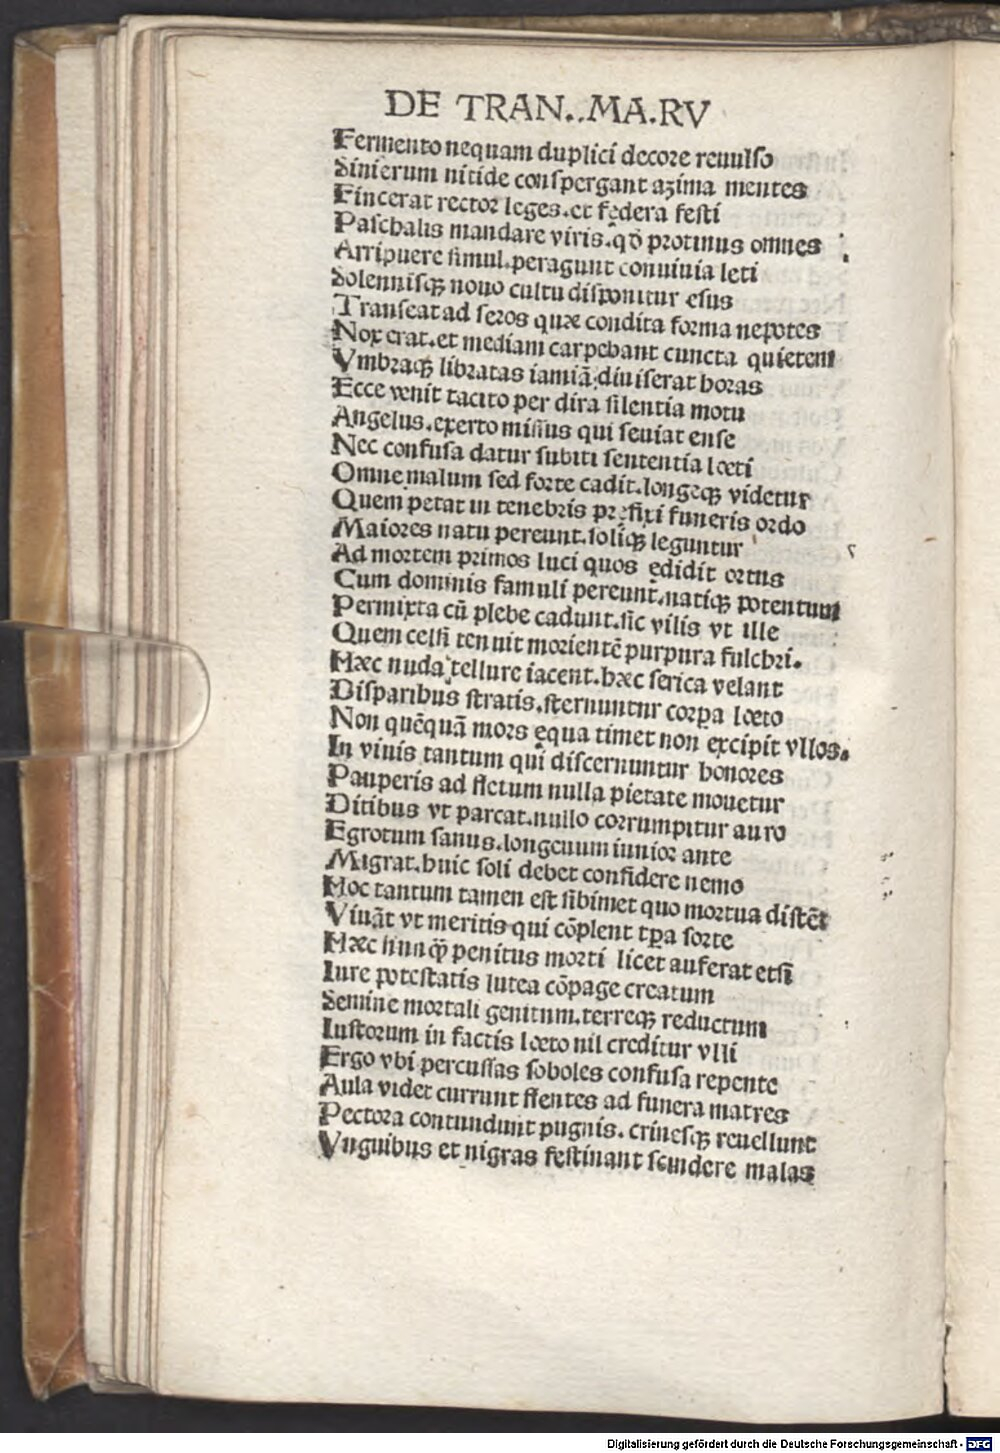 DE TRAN..MA.RV
Fermento nequam duplici decore reuulso
Sinierum nitide conspergant azima mentes
Fincerat rector leges.et fędera festi
Paschalis mandare viris.qđ protinus omnes
Arripuere simul.peragunt conuiuia leti
Solennisq; nouo cultu disponitur esus
Transeat ad seros quæ condita forma nepotes
Nox erat.et mediam carpebant cuncta quietem
Vmbraq; libratas iamiā diuiserat horas
Ecce venit tacito per dira silentia motu
Angelus.exerto missus qui seuiat ense
Nec confusa datur subiti sententia lœti
Omne malum sed forte cadit.longeq; videtur
Quem petat in tenebris prefixi funeris ordo
Maiores natu pereunt.soliq; leguntur
Ad mortem primos luci quos ędidit ortus
Cum dominis famuli pereunt.natiq; potentum
Permixta cū plebe cadunt.sic vilis vt ille
Quem celsi tenuit morientē purpura fulchri.
Hæc nuda tellure iacent.hæc serica velant
Disparibus stratis.sternuntur corpa lœto
Non quēquā mors ęqua timet non excipit vllos.
In viuis tantum qui discernuntur honores
Pauperis ad fletum nulla pietate mouetur
Ditibus vt parcat.nullo corrumpitur auro
Egrotum sanus.longeuum iunior ante
Migrat.huic soli debet confidere nemo
Hoc tantum tamen est sibimet quo mortua distēt
Viuāt vt meritis qui cōplent tpa sorte
Hæc nunq̄ penitus morti licet auferat etsi
Iure potestatis lutea cōpage creatum
Semine mortali genitum.terreq; reductum
Iustorum in factis lœto nil creditur vlli
Ergo vbi percussas soboles confusa repente
Aula videt currunt flentes ad funera matres
Pectora contundunt pugnis.crinesq; reuellunt
Vnguibus et nigras festinant scindere malas
Digitalisierung gefördert durch die Deutsche Forschungsgemeinschaft - DFG